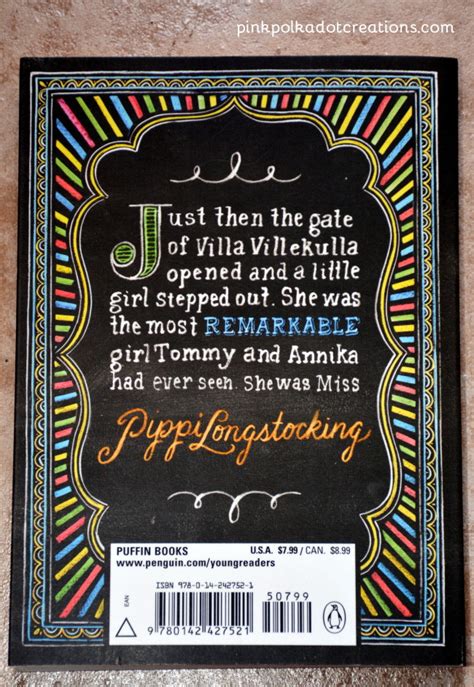 pinkpolkadotcreations.com
Just then the gate
of Villa Villekulla
opened and a little
girl stepped out. She was
the most REMARKABLE
girl Tommy and Annika
had ever seen. She was Miss
Pippi Longstocking
PUFFIN BOOKS U.S.A. $7.99 / CAN. $8.99
www.penguin.com/youngreaders
ISBN 978-0-14-242752-1
50799
EAN
9 780142 427521